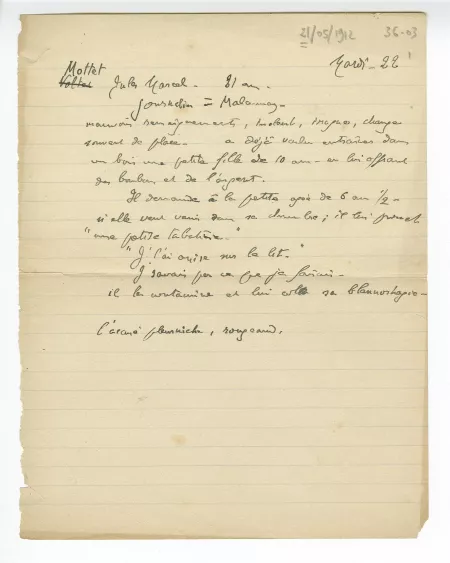 21/05/1912 36-03
Mardi - 22
Mottet
Jules Marcel - 21 ans -
journalier = Malaunay -
mauvais renseignements, violent, ivrogne, change
souvent de place - a déjà voulu entraîner dans
un bois une petite fille de 10 ans - en lui offrant
des bonbons et de l'argent.
Il demande à la petite âgée de 6 ans 1/2 -
si elle veut venir dans sa chambre ; il lui promet
"une petite tabatière."
"J' l'ai assise sur le lit."
J' savais pas ce que je faisais -
il la contamine et lui colle sa blennorhagie -
l'accusé pleurniche, rougeaud.